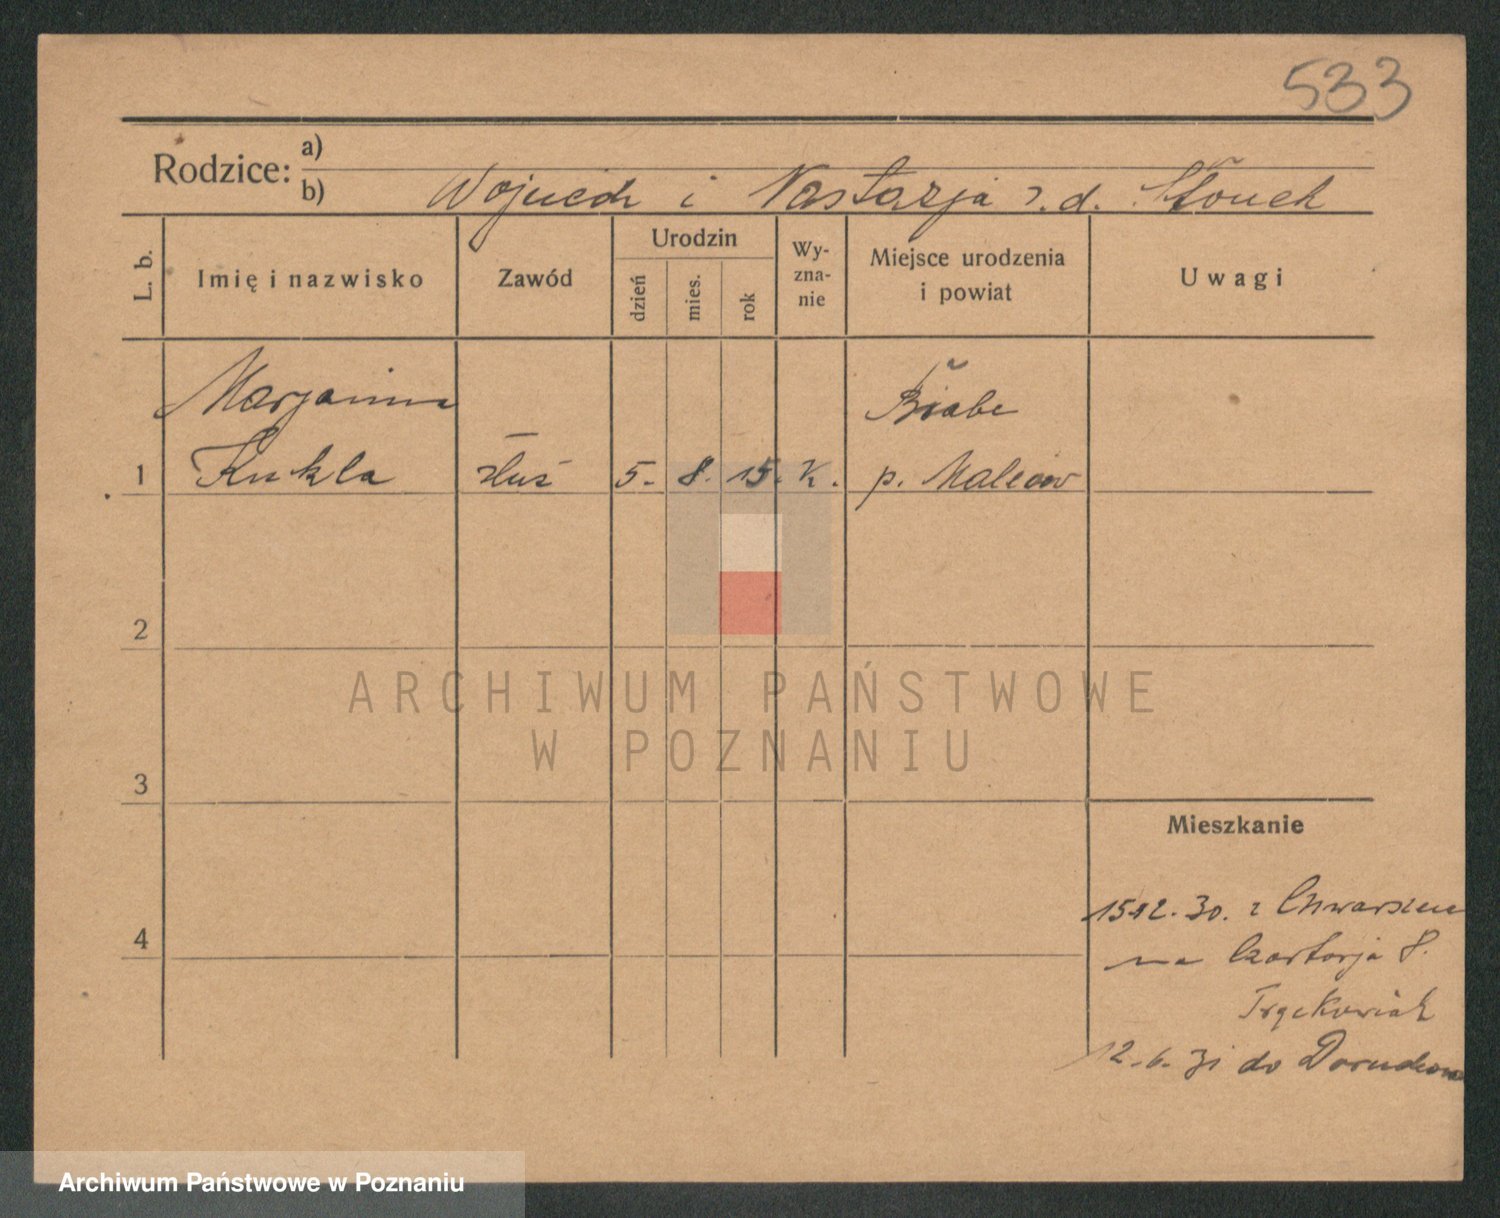 533
Rodzice: a)
b) Wojciech i Nastazja z.d. Słouch
L. b. Imię i nazwisko Zawód Urodzin dzień mies. rok Wy-zna-nie Miejsce urodzenia i powiat Uwagi
Marjanna
1 Kukla służ 5. 8. 15. k. p.
2
ARCHIWUM PAŃSTWOWE
W POZNANIU
3
Mieszkanie
15.12.30. z
4
na Czartorja 8.
12.6.31 do
Archiwum Państwowe w Poznaniu